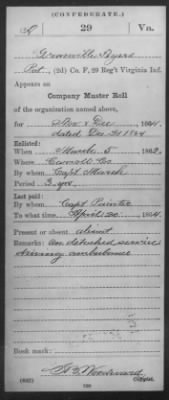 (CONFEDERATE.)
A 29 Vn.
Granville Ayers
Pvt., (2d) Co. F, 29 Reg't Virginia Inf.
Appears on
Company Muster Roll
of the organization named above,
for Nov & Dec, 1864.
dated Dec 31 1864
Enlisted:
When March 5, 1862.
Where Carroll Co
By whom Capt March
Period 3 yrs
Last paid:
By whom Capt Painter
To what time April 30, 1864.
Present or absent absent
Remarks: on detached service
driving ambulance
Book mark:
Woodward
(642) Copyist.